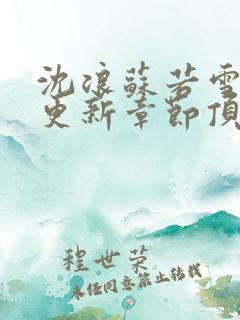 沈浪蘇若雪
更新章節頂
程世荣
未经同意禁止转载